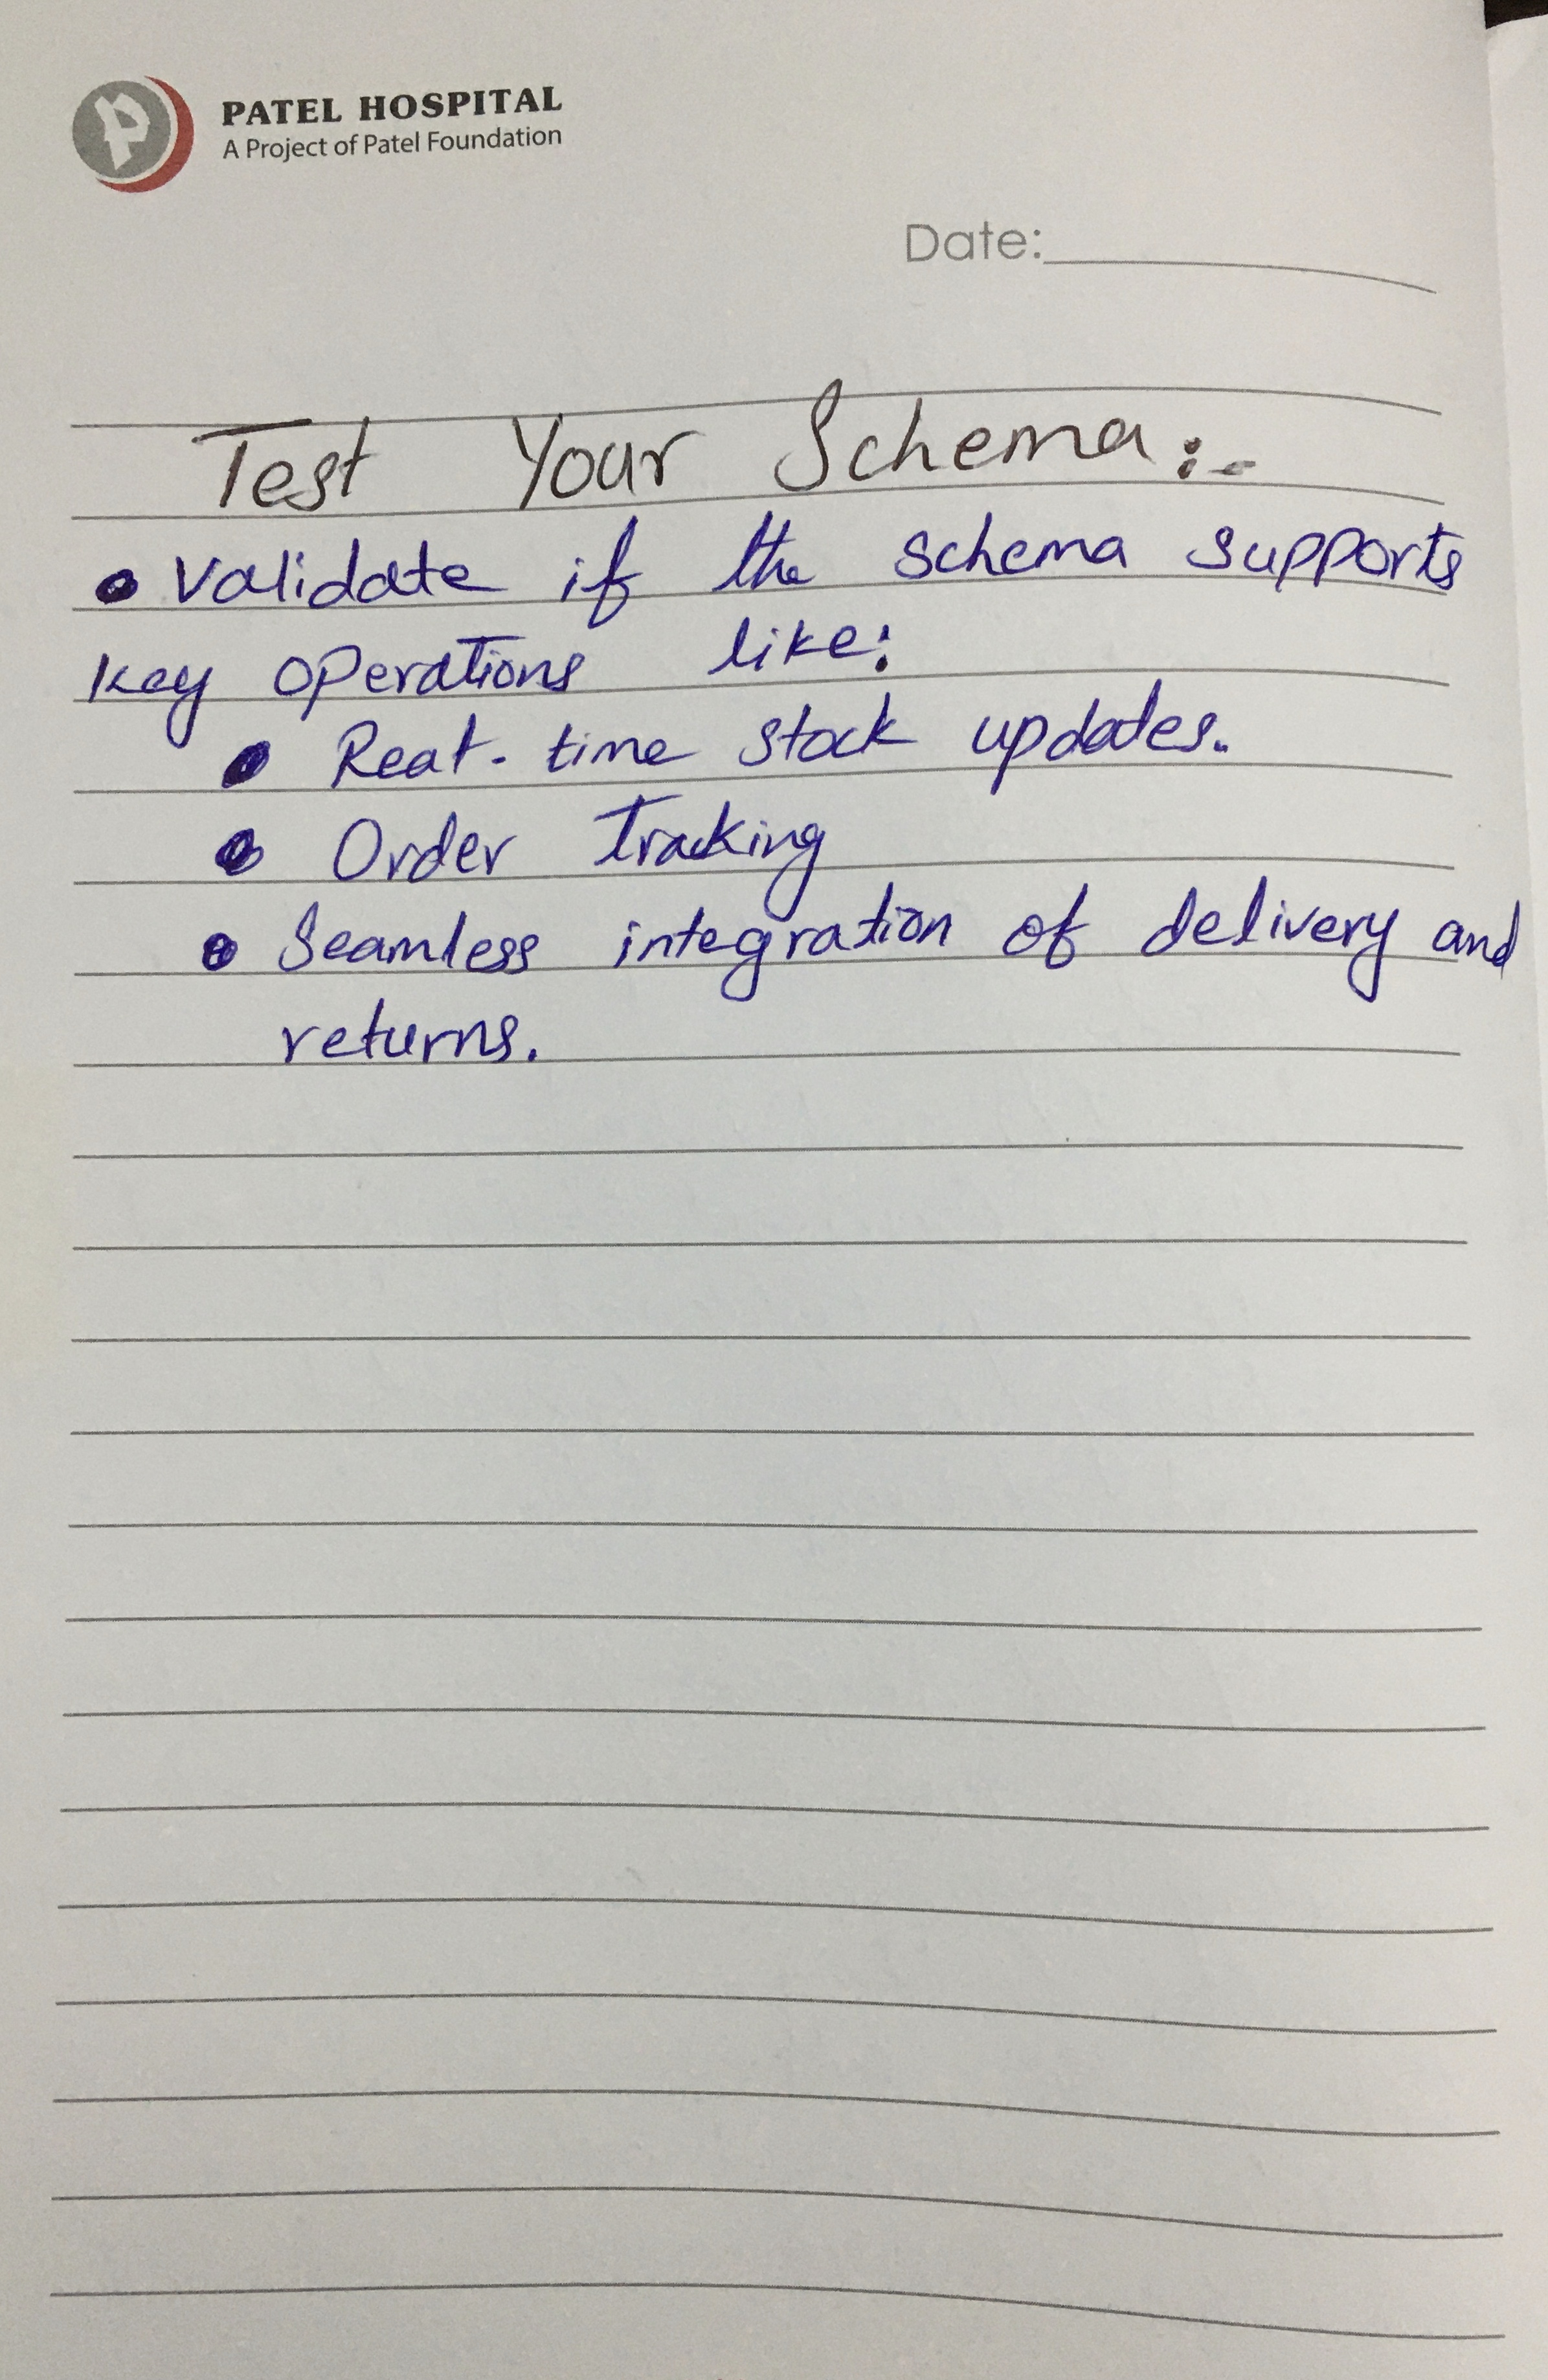 PATEL HOSPITAL
A Project of Patel Foundation
Date:
Test Your Schema:-
• Validate if the schema supports
key operations like:
• Real-time stock updates.
• Order Tracking
• Seamless integration of delivery and
returns.